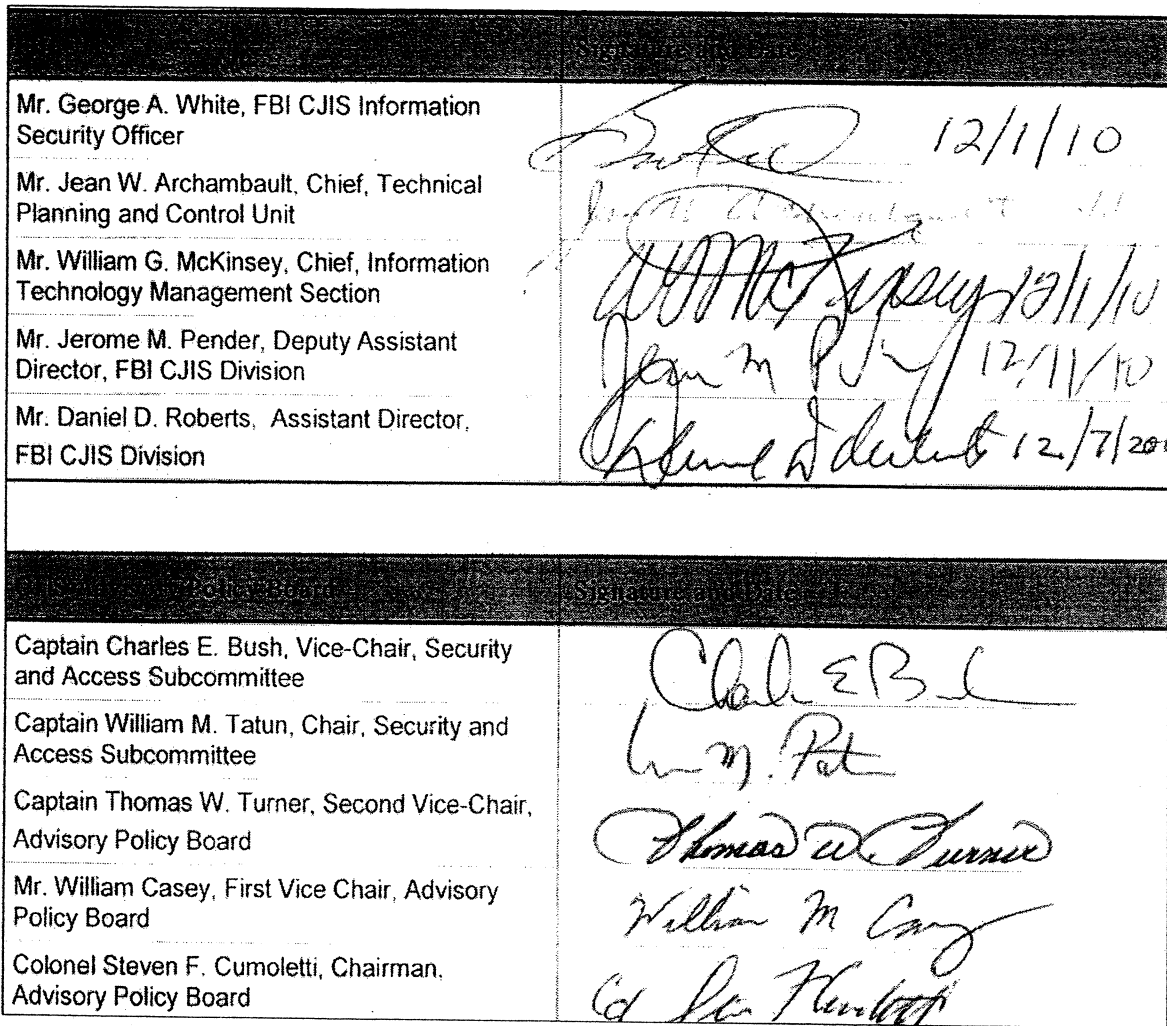 Signature and Date
Mr. George A. White, FBI CJIS Information
Security Officer
12/1/10
Mr. Jean W. Archambault, Chief, Technical
Planning and Control Unit
Mr. William G. McKinsey, Chief, Information
Technology Management Section
WG McKinsey 12/1/10
Mr. Jerome M. Pender, Deputy Assistant
Director, FBI CJIS Division
12/1/10
Mr. Daniel D. Roberts, Assistant Director,
FBI CJIS Division
12/7/20
Policy Board
Signature and Date
Captain Charles E. Bush, Vice-Chair, Security
and Access Subcommittee
Charles E B
Captain William M. Tatun, Chair, Security and
Access Subcommittee
Captain Thomas W. Turner, Second Vice-Chair,
Advisory Policy Board
Thomas W. Turner
Mr. William Casey, First Vice Chair, Advisory
Policy Board
William M Casey
Colonel Steven F. Cumoletti, Chairman,
Advisory Policy Board
Col